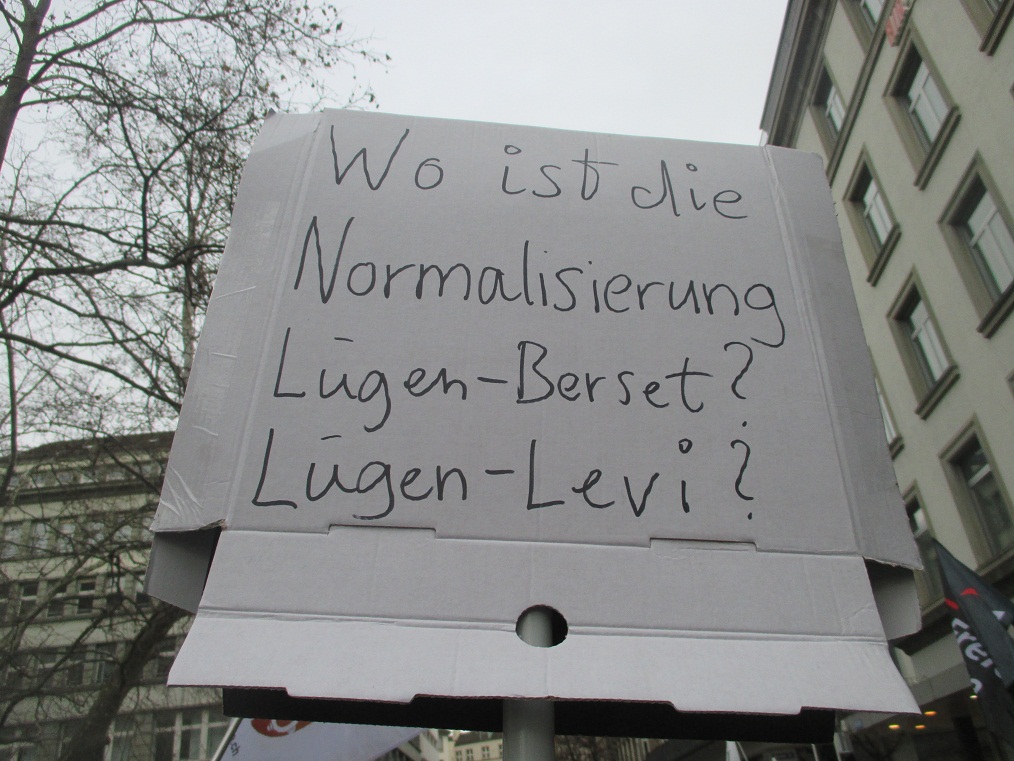 Wo ist die
Normalisierung
Lügen-Berset?
Lügen-Levi?